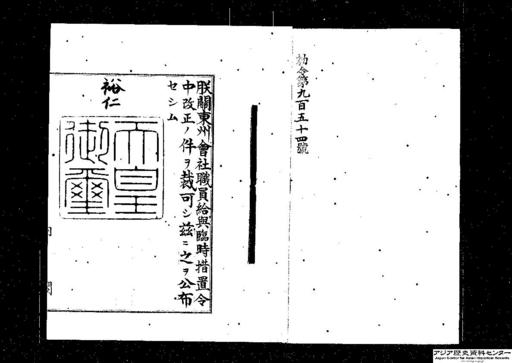 勅令第九百五十四號
朕關東州會社職員給與臨時措置令
中改正ノ件ヲ裁可シ玆ニ之ヲ公布
セシム
裕仁
天皇
御璽
内閣
アジア歴史資料センター
Japan Center for Asian Historical Records